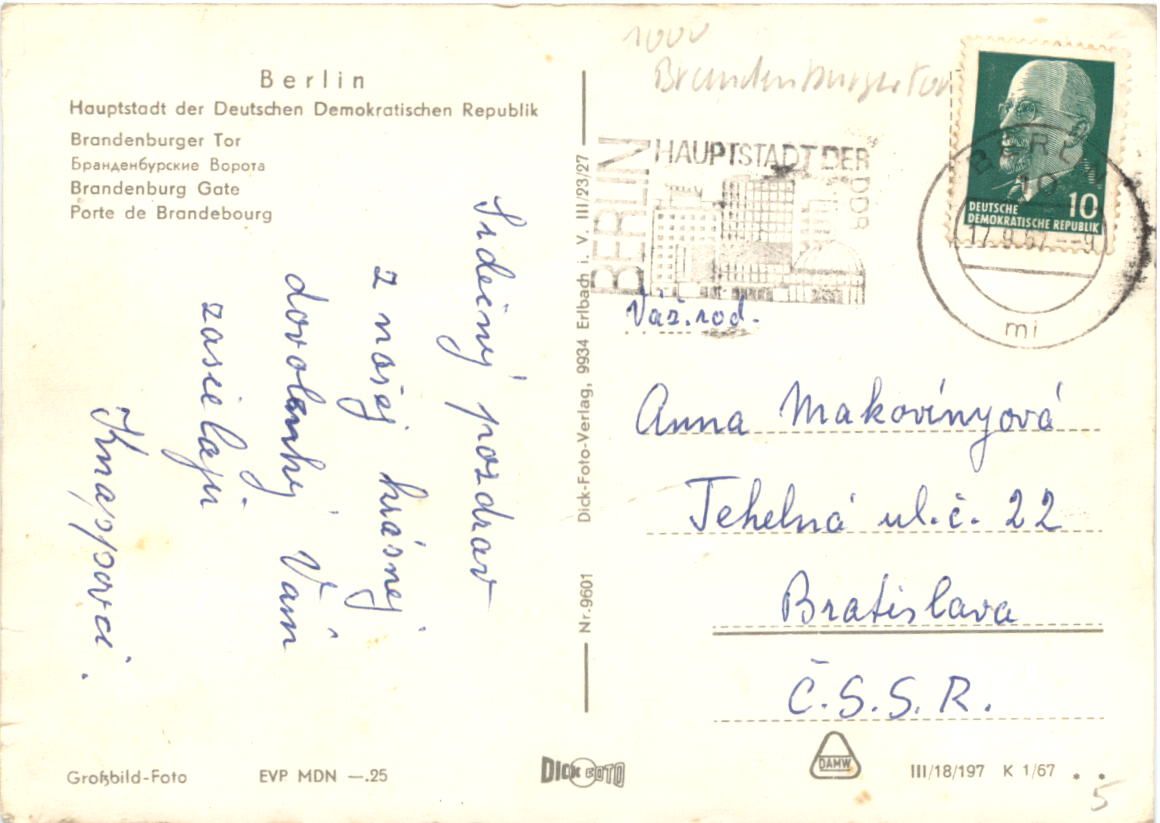 Berlin
Hauptstadt der Deutschen Demokratischen Republik
Brandenburger Tor
Бранденбурские Ворота
Brandenburg Gate
Porte de Brandebourg
Srdečný pozdrav
z našej krásnej
dovolenky Vám
zasielajú
Knappovci.
Großbild-Foto
EVP MDN —.25
Nr. 9601
Dick-Foto-Verlag, 9934 Erlbach i. V. III/23/27
DICK FOTO
1000
Brandenburger Tor
BERLIN
HAUPTSTADT DER
DDR
DEUTSCHE
DEMOKRATISCHE REPUBLIK
10
BERLIN
10
17.9.67--9
mi
Váž. rod.
Anna Makovínyová
Tehelná ul. č. 22
Bratislava
Č.S.S.R.
DAMW
III/18/197 K 1/67
5